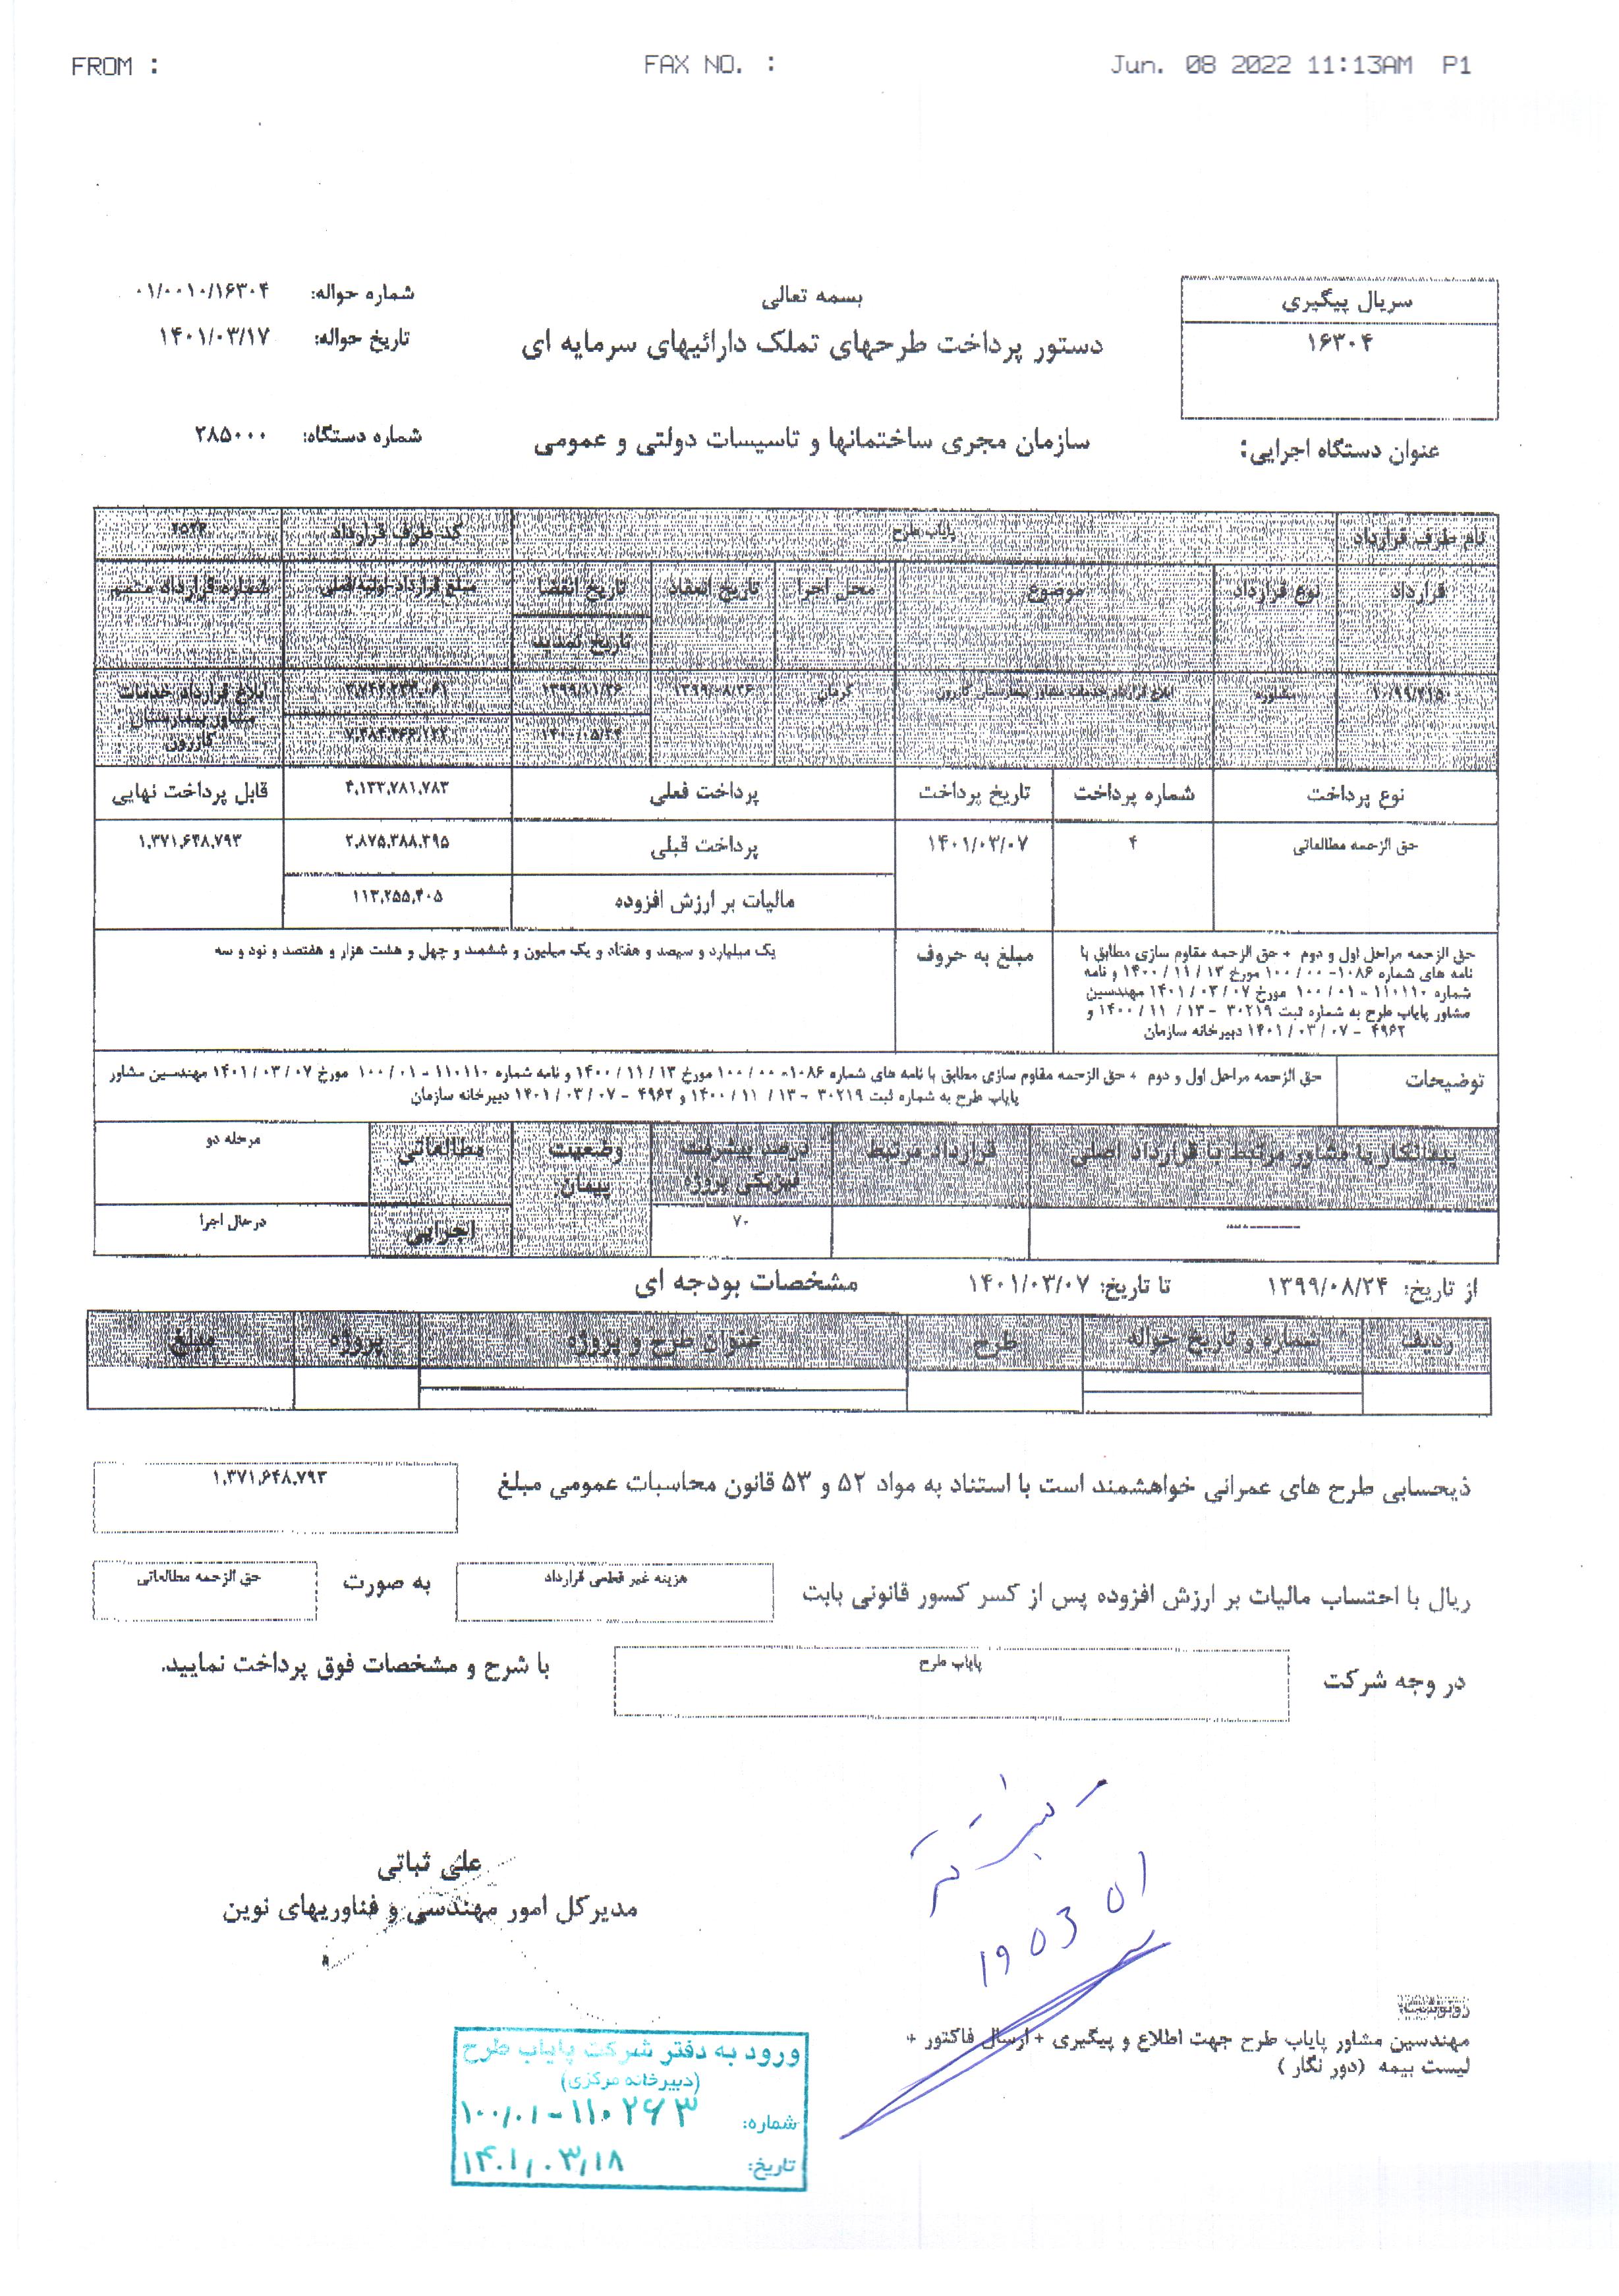 FROM :
FAX NO. :
Jun. 08 2022 11:13AM P1
سریال پیگیری
۱۶۳۰۴
بسمه تعالی
دستور پرداخت طرحهای تملک دارائیهای سرمایه ای
شماره حواله: ۰۱/۰۰۱۰/۱۶۳۰۴
تاریخ حواله: ۱۴۰۱/۰۳/۱۷
عنوان دستگاه اجرایی:
سازمان مجری ساختمانها و تاسیسات دولتی و عمومی
شماره دستگاه: ۲۸۵۰۰۰
نام طرف قرارداد
پایاب طرح
کد طرف قرارداد
قرارداد
نوع قرارداد
موضوع
محل اجرا
تاریخ انعقاد
تاریخ انقضا
تاریخ تمدید
مبلغ قرارداد اولیه/فعلی
شماره قرارداد متمم
مشاوره
ابلاغ قرارداد خدمات مشاور بیمارستان کازرون
کرمان
۱۳۹۹/۰۸/۲۶
۱۳۹۹/۱۱/۲۶
ابلاغ قرارداد خدمات
مشاور بیمارستان
کازرون
نوع پرداخت
شماره پرداخت
تاریخ پرداخت
پرداخت فعلی
۴,۱۳۳,۷۸۱,۷۸۳
قابل پرداخت نهایی
حق الزحمه مطالعاتی
۴
۱۴۰۱/۰۳/۰۷
پرداخت قبلی
۲,۸۷۵,۳۸۸,۳۹۵
۱,۳۷۱,۶۴۸,۷۹۳
مالیات بر ارزش افزوده
۱۱۳,۲۵۵,۴۰۵
حق الزحمه مراحل اول و دوم + حق الزحمه مقاوم سازی مطابق با
نامه های شماره ۱۰۸۶- ۰۰ / ۱۰۰ مورخ ۱۳ / ۱۱ / ۱۴۰۰ و نامه
شماره ۱۱۰۱۱۰ - ۰۱ / ۱۰۰ مورخ ۰۷ / ۰۳ / ۱۴۰۱ مهندسین
مشاور پایاب طرح به شماره ثبت ۳۰۲۱۹ - ۱۳ / ۱۱ / ۱۴۰۰ و
۴۹۶۲ - ۰۷ / ۰۳ / ۱۴۰۱ دبیرخانه سازمان
مبلغ به حروف
یک میلیارد و سیصد و هفتاد و یک میلیون و ششصد و چهل و هشت هزار و هفتصد و نود و سه
توضیحات
حق الزحمه مراحل اول و دوم + حق الزحمه مقاوم سازی مطابق با نامه های شماره ۱۰۸۶- ۰۰ / ۱۰۰ مورخ ۱۳ / ۱۱ / ۱۴۰۰ و نامه شماره ۱۱۰۱۱۰ - ۰۱ / ۱۰۰ مورخ ۰۷ / ۰۳ / ۱۴۰۱ مهندسین مشاور
پایاب طرح به شماره ثبت ۳۰۲۱۹ - ۱۳ / ۱۱ / ۱۴۰۰ و ۴۹۶۲ - ۰۷ / ۰۳ / ۱۴۰۱ دبیرخانه سازمان
پیمانکار یا مشاور مرتبط با قرارداد اصلی
قرارداد مرتبط
درصد پیشرفت
فیزیکی پروژه
وضعیت
پیمان:
مطالعاتی
مرحله دو
۷۰
اجرایی
درحال اجرا
از تاریخ: ۱۳۹۹/۰۸/۲۴
تا تاریخ: ۱۴۰۱/۰۳/۰۷
مشخصات بودجه ای
ردیف
شماره و تاریخ حواله
طرح
عنوان طرح و پروژه
پروژه
مبلغ
ذیحسابی طرح های عمرانی خواهشمند است با استناد به مواد ۵۲ و ۵۳ قانون محاسبات عمومی مبلغ
۱,۳۷۱,۶۴۸,۷۹۳
ریال با احتساب مالیات بر ارزش افزوده پس از کسر کسور قانونی بابت
هزینه غیر قطعی قرارداد
به صورت
حق الزحمه مطالعاتی
در وجه شرکت
پایاب طرح
با شرح و مشخصات فوق پرداخت نمایید.
علی ثباتی
مدیرکل امور مهندسی و فناوریهای نوین
رونوشت:
مهندسین مشاور پایاب طرح جهت اطلاع و پیگیری + ارسال فاکتور +
لیست بیمه (دور نگار )
ورود به دفتر شرکت پایاب طرح
(دبیرخانه مرکزی)
شماره: ۱۰۰/۰۱-۱۱۰۲۶۳
تاریخ: ۱۴۰۱/۰۳/۱۸